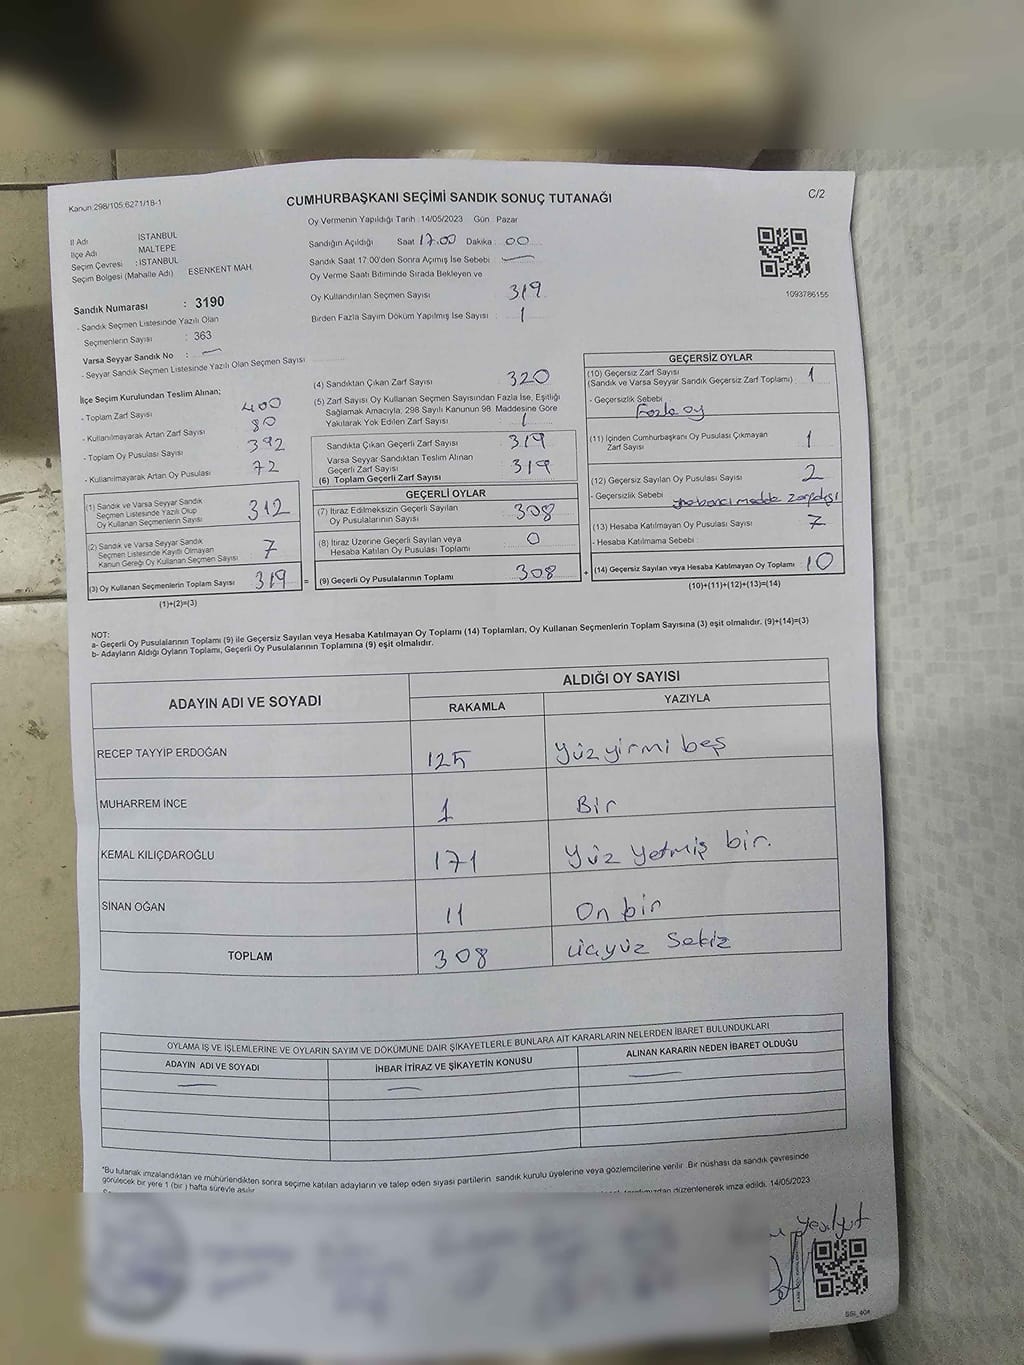 Kanun:298/105;6271/18-1
CUMHURBAŞKANI SEÇİMİ SANDIK SONUÇ TUTANAĞI
C/2
Oy Vermenin Yapıldığı Tarih : 14/05/2023 Gün : Pazar
İl Adı : İSTANBUL
İlçe Adı : MALTEPE
Seçim Çevresi : İSTANBUL
Seçim Bölgesi (Mahalle Adı) ESENKENT MAH.
Sandığın Açıldığı Saat 17.00 Dakika 00
Sandık Saat 17:00'den Sonra Açımış İse Sebebi : —
Oy Verme Saati Bitiminde Sırada Bekleyen ve
Oy Kullandırılan Seçmen Sayısı 319
Birden Fazla Sayım Döküm Yapılmış İse Sayısı : 1
1093786155
Sandık Numarası : 3190
- Sandık Seçmen Listesinde Yazılı Olan
Seçmenlerin Sayısı : 363
Varsa Seyyar Sandık No : —
- Seyyar Sandık Seçmen Listesinde Yazılı Olan Seçmen Sayısı
İlçe Seçim Kurulundan Teslim Alınan;
- Toplam Zarf Sayısı 400
- Kullanılmayarak Artan Zarf Sayısı 80
- Toplam Oy Pusulası Sayısı 392
- Kullanılmayarak Artan Oy Pusulası 72
(1) Sandık ve Varsa Seyyar Sandık
Seçmen Listesinde Yazılı Olup
Oy Kullanan Seçmenlerin Sayısı 312
(2) Sandık ve Varsa Seyyar Sandık
Seçmen Listesinde Kayıtlı Olmayan
Kanun Gereği Oy Kullanan Seçmen Sayısı 7
(3) Oy Kullanan Seçmenlerin Toplam Sayısı 319 =
(1)+(2)=(3)
(4) Sandıktan Çıkan Zarf Sayısı 320
(5) Zarf Sayısı Oy Kullanan Seçmen Sayısından Fazla İse, Eşitliği
Sağlamak Amacıyla, 298 Sayılı Kanunun 98. Maddesine Göre
Yakılarak Yok Edilen Zarf Sayısı : 1
Sandıkta Çıkan Geçerli Zarf Sayısı 319
Varsa Seyyar Sandıktan Teslim Alınan
Geçerli Zarf Sayısı 319
(6) Toplam Geçerli Zarf Sayısı
GEÇERLİ OYLAR
(7) İtiraz Edilmeksizin Geçerli Sayılan
Oy Pusulalarının Sayısı 308
(8) İtiraz Üzerine Geçerli Sayılan veya
Hesaba Katılan Oy Pusulası Toplamı 0
(9) Geçerli Oy Pusulalarının Toplamı 308 +
GEÇERSİZ OYLAR
(10) Geçersiz Zarf Sayısı
(Sandık ve Varsa Seyyar Sandık Geçersiz Zarf Toplamı) 1
- Geçersizlik Sebebi :
Fazla oy
(11) İçinden Cumhurbaşkanı Oy Pusulası Çıkmayan
Zarf Sayısı 1
(12) Geçersiz Sayılan Oy Pusulası Sayısı 2
- Geçersizlik Sebebi yabancı madde zarf dışı
(13) Hesaba Katılmayan Oy Pusulası Sayısı 7
- Hesaba Katılmama Sebebi :
(14) Geçersiz Sayılan veya Hesaba Katılmayan Oy Toplamı 10
(10)+(11)+(12)+(13)=(14)
NOT:
a- Geçerli Oy Pusulalarının Toplamı (9) ile Geçersiz Sayılan veya Hesaba Katılmayan Oy Toplamı (14) Toplamları, Oy Kullanan Seçmenlerin Toplam Sayısına (3) eşit olmalıdır. (9)+(14)=(3)
b- Adayların Aldığı Oyların Toplamı, Geçerli Oy Pusulalarının Toplamına (9) eşit olmalıdır.
ADAYIN ADI VE SOYADI
ALDIĞI OY SAYISI
RAKAMLA YAZIYLA
RECEP TAYYİP ERDOĞAN 125 Yüz yirmi beş
MUHARREM İNCE 1 Bir
KEMAL KILIÇDAROĞLU 171 Yüz yetmiş bir.
SİNAN OĞAN 11 On bir
TOPLAM 308 üçyüz Sekiz
OYLAMA İŞ VE İŞLEMLERİNE VE OYLARIN SAYIM VE DÖKÜMÜNE DAİR ŞİKAYETLERLE BUNLARA AİT KARARLARIN NELERDEN İBARET BULUNDUKLARI
ADAYIN ADI VE SOYADI İHBAR İTİRAZ VE ŞİKAYETİN KONUSU ALINAN KARARIN NEDEN İBARET OLDUĞU
— — —
*Bu tutanak imzalandıktan ve mühürlendikten sonra seçime katılan adayların ve talep eden siyasi partilerin sandık kurulu üyelerine veya gözlemcilerine verilir. Bir nüshası da sandık çevresinde
görülecek bir yere 1 (bir) hafta süreyle asılır.
tarafımızdan düzenlenerek imza edildi. 14/05/2023
Yeşilyut